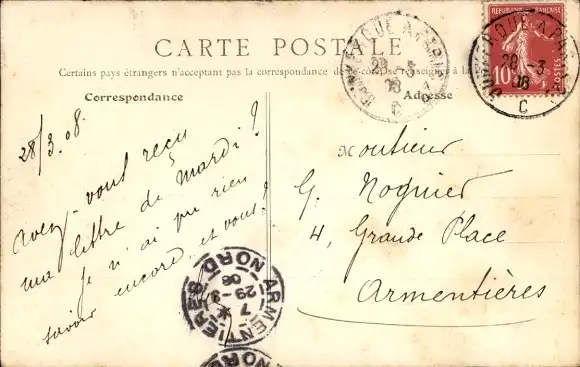 CARTE POSTALE
Certains pays étrangers n'acceptant pas la correspondance
Correspondance
Adresse
DUNKERQUE A PARIS
28 -3
08
C
REPUBLIQUE FRANÇAISE
10
POSTES
DUNKERQUE A PARIS
28 -3
08
C
28/3.08.
Avez-vous reçu
ma lettre de Mardi?
Je n'ai pu rien
savoir encore, et vous?
Monsieur
G. Noquier
4, Grande Place
Armentières
ARMENTIERES
7
29-3
08
NORD
NORD